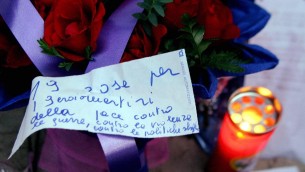 19 rose per
i seminatori
della pace contro
le guerre, contro la violenza
contro le politiche degli